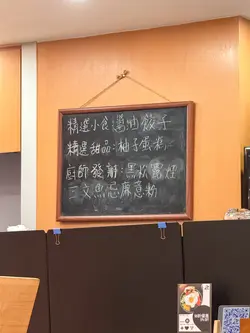 精選小食:醬油餃子
精選甜品:柚子蛋糕
廚師發辦:黑松露煙
三文魚忌廉意粉